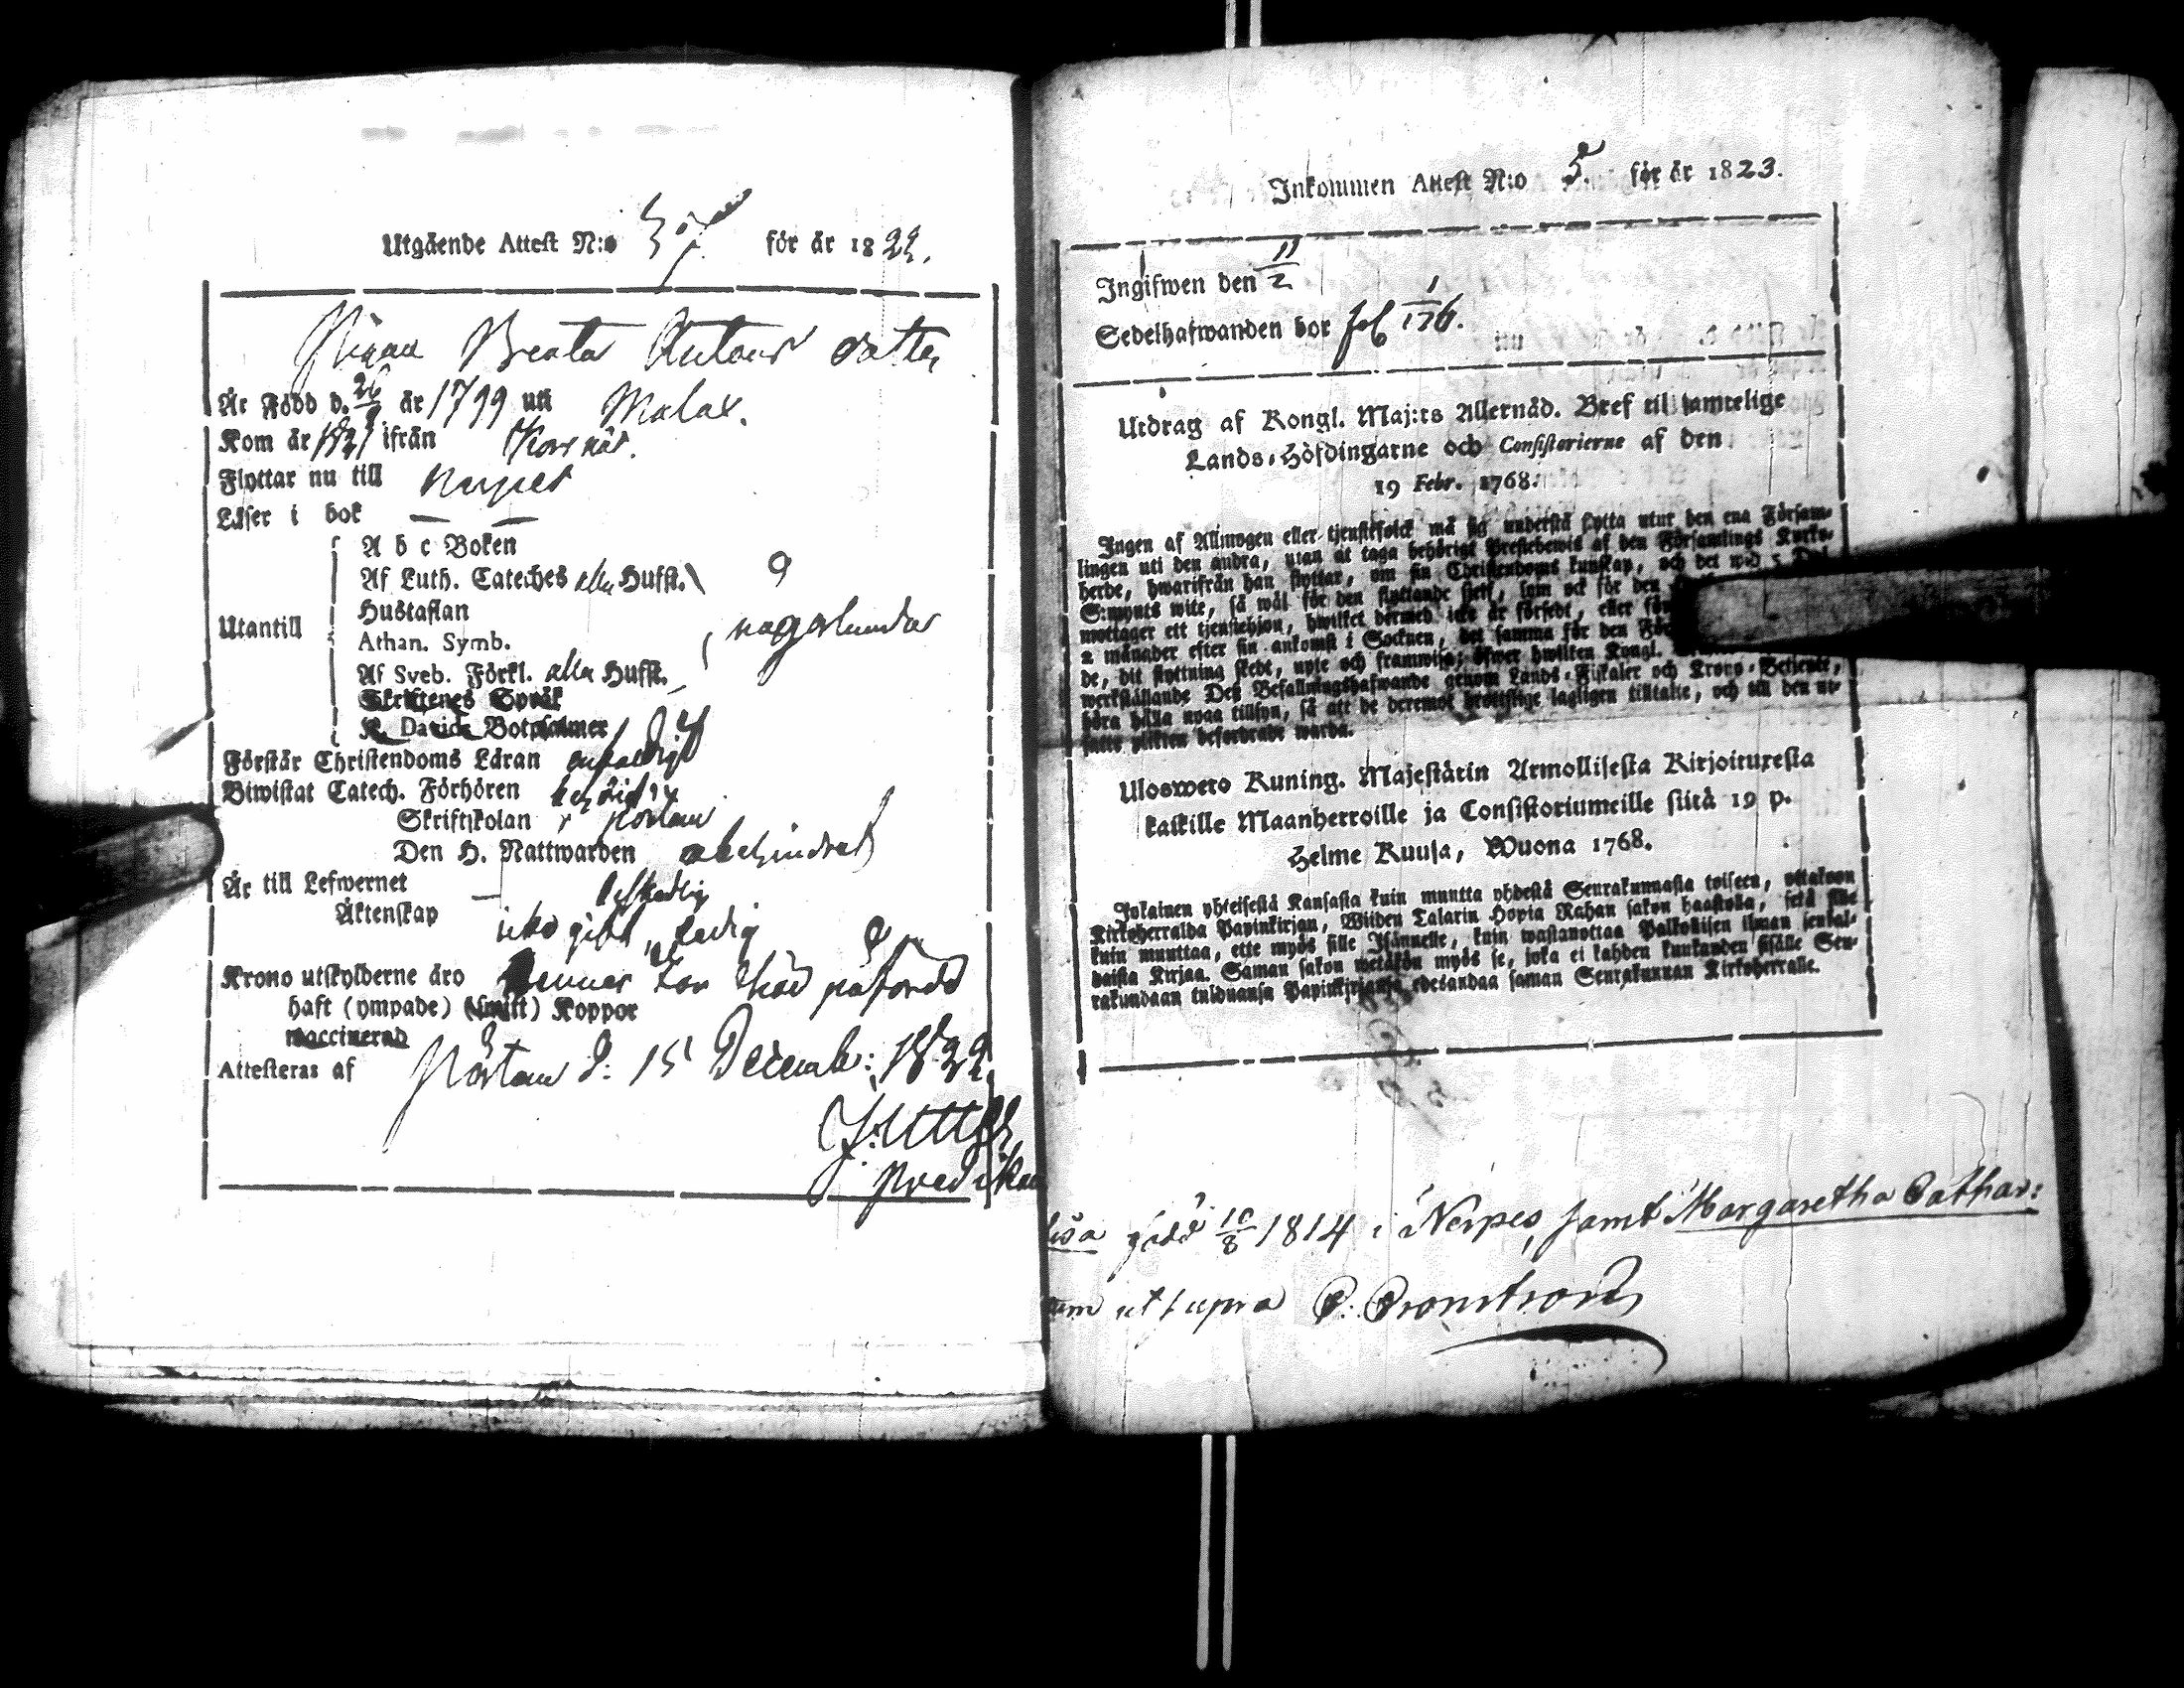 Utgående Attest N:o 37 för år 1822.
Pigan Breata Antons dotter
Är Född d. 26/9 år 1799 uti Malax.
Kom år 1821 ifrån Korsnäs.
Flyttar nu till Nerpes
Läser i bok — —
Utantill
A b c Boken
Af Luth. Cateches alla Hufst.
Hustaflan
Athan. Symb.
någorlunda
Af Sveb. Förkl. alla Hufst.
Skriftenes Språk
K. Davids Botpsalmer
Förstår Christendoms Läran enfaldigt
Biwistat Catech. Förhören
Skriftskolan i Pörtom
Den H. Nattwarden obehindrad
Är till Lefwernet — beskedlig
Äktenskap icke gift, ledig
Krono utskylderne äro henner här påförde
haft (ympade) (smitt) Koppor
waccinerad
Attesteras af Pörtom d: 15 Decemb: 1822.
Inkommen Attest N:o 5. för år 1823.
Ingifwen den 11/2
Sedelhafwanden bor fol 1/176.
Utdrag af Kongl. Maj:ts Allernåd. Bref til samtelige
Lands-Höfdingarne och Consistorierne af den
19 Febr. 1768.
Ingen af Allmogen eller tjenstefolck må sig understå flytta utur den ena Församlingen
uti den andra, utan at taga behörigt Prestebewis af den Församlings Kyrkoherde,
hwarifrån han flyttar, om sin Christendoms kunskap, och det wid 5 Dal.
S:mynts wite, så wäl för den flyttande sielf, som ock för den
mottager ett tjenstehjon, hwilket dermed icke är försedt, eller
2 månader efter sin ankomst i Socknen, det samma för den
de, dit flyttning skedt, upte och framwisa; öfwer hwilken Kongl.
werkställande Des Befallningshafwande genom Lands-Fiskaler och Krono-Betjente,
böra hålla noga tillsyn, så att de deremot brottslige lagligen tilltalte, och till den
satte plikten befordrade warda.
Uloswets Kuning. Majestätin Armollisesta Kirjoituxesta
kaikille Maanherroille ja Consistoriumeille siitä 19 p.
Helme Kuusa, Wuona 1768.
Jokainen yhteisestä Kansasta kuin muutta yhdestä Seurakunnasta toiseen, ottakoon
Kirkoherralda Papinkirjan, Wiiden Talarin Hopia Rahan sakon haastolla, sekä sille
kuin muuttaa, ette myös sille Isännelle, kuin wastanottaa Palkollisen ilman
Kirjaa. Saman sakon wetäkön myös se, joka ei kahden kuukauden sisälle Seurakundaan
tulduansa Papinkirjansa edesandaa saman Seurakunnan Kirkoherralle.
född 10/8 1814 i Nerpes, samt Margaretha Cathar:
ut supra